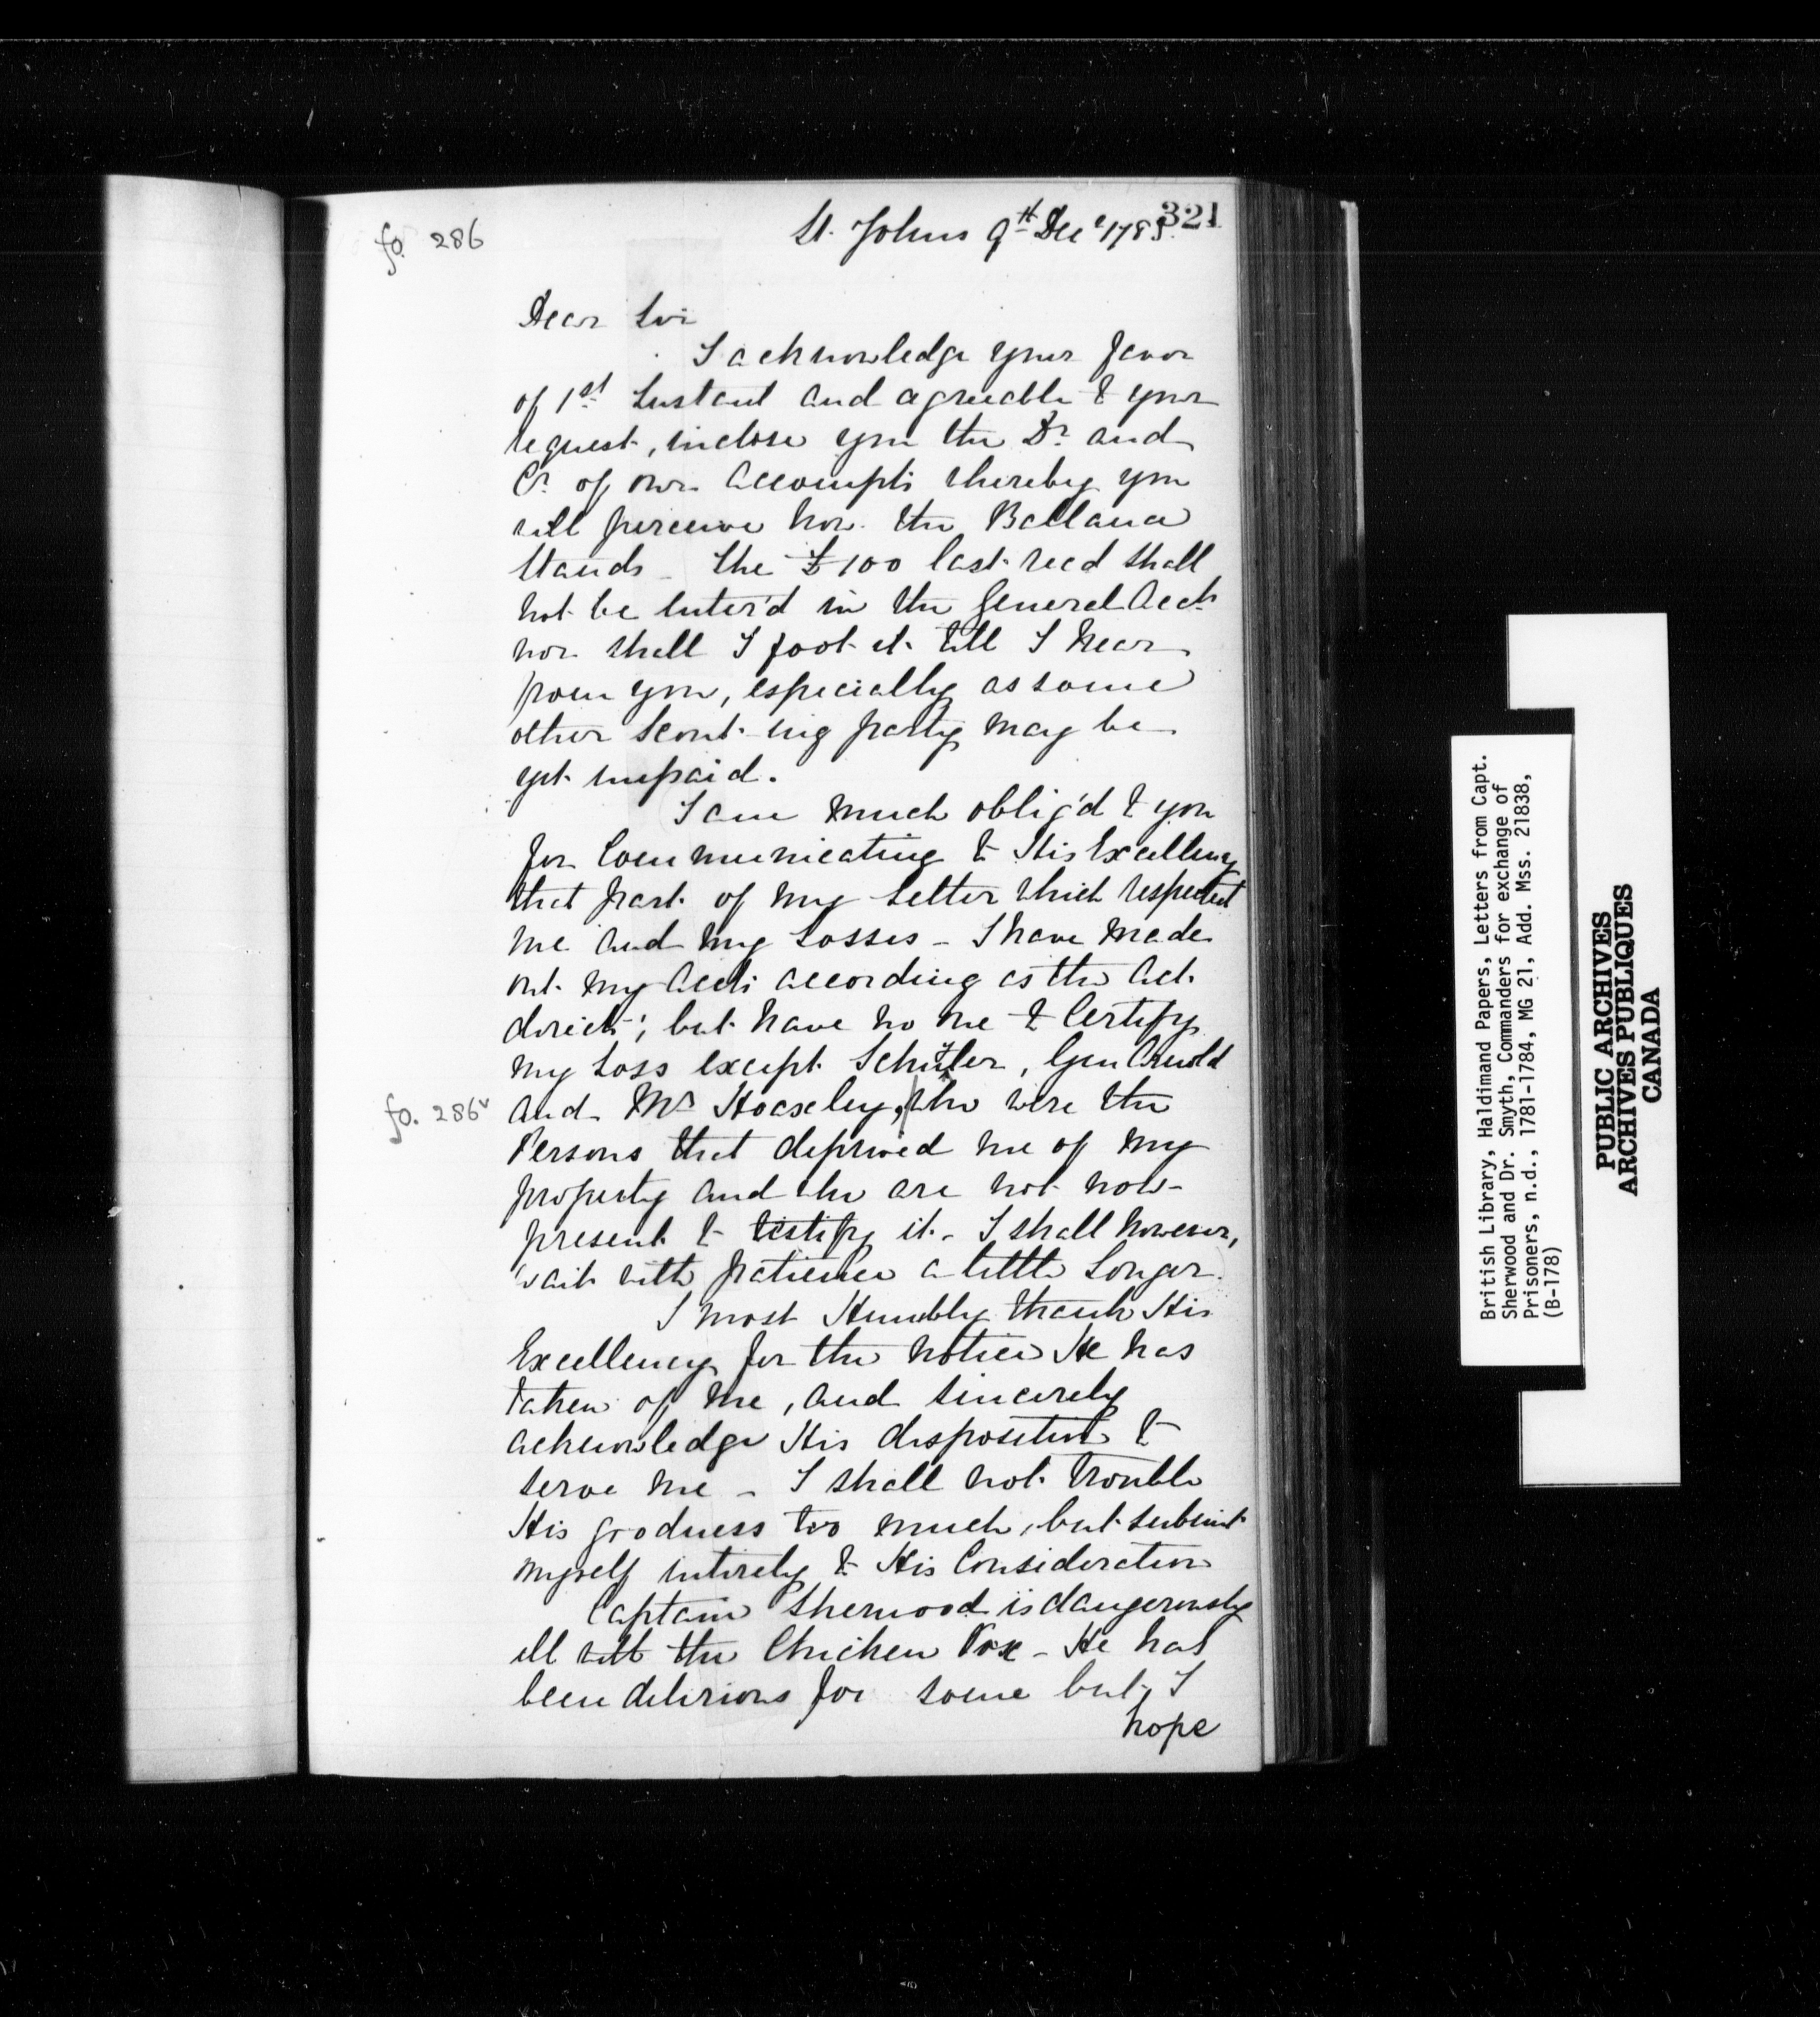 321
fo. 286
St. Johns 9th Decr 1783
Dear Sir
I acknowledge your favor
of 1st Instant and agreeable to your
request, inclose you the Dr and
Cr of our Accompts whereby you
will perceive how the Ballance
stands – The £100 last recd shall
not be enter'd in the General Acct
nor shall I foot it till I hear
from you, especially as some
other scout-ing party may be
yet unpaid.
I am much oblig'd to you
for Communicating to His Excellency
that part of my letter which respected
me and my Losses – I have made
out my Accts according as the Act
directs; but have no one to Certify
my Loss except Schuyler, Gen Arnold
fo. 286v
and Mr , who were the
Persons that deprived me of my
property and who are not now
present to testify it – I shall however,
wait with patience a little Longer.
I most Humbly thank His
Excellency for the notice He has
taken of me, and sincerely
acknowledge His disposition to
serve me – I shall not trouble
His goodness too much, but submit
myself intirely to His Consideration
Captain Sherwood is dangerously
ill with the Chicken Pox – He has
been delirious for some but I
hope
British Library, Haldimand Papers, Letters from Capt.
Sherwood and Dr. Smyth, Commanders for exchange of
Prisoners, n.d., 1781-1784, MG 21, Add. Mss. 21838,
(B-178)
PUBLIC ARCHIVES
ARCHIVES PUBLIQUES
CANADA